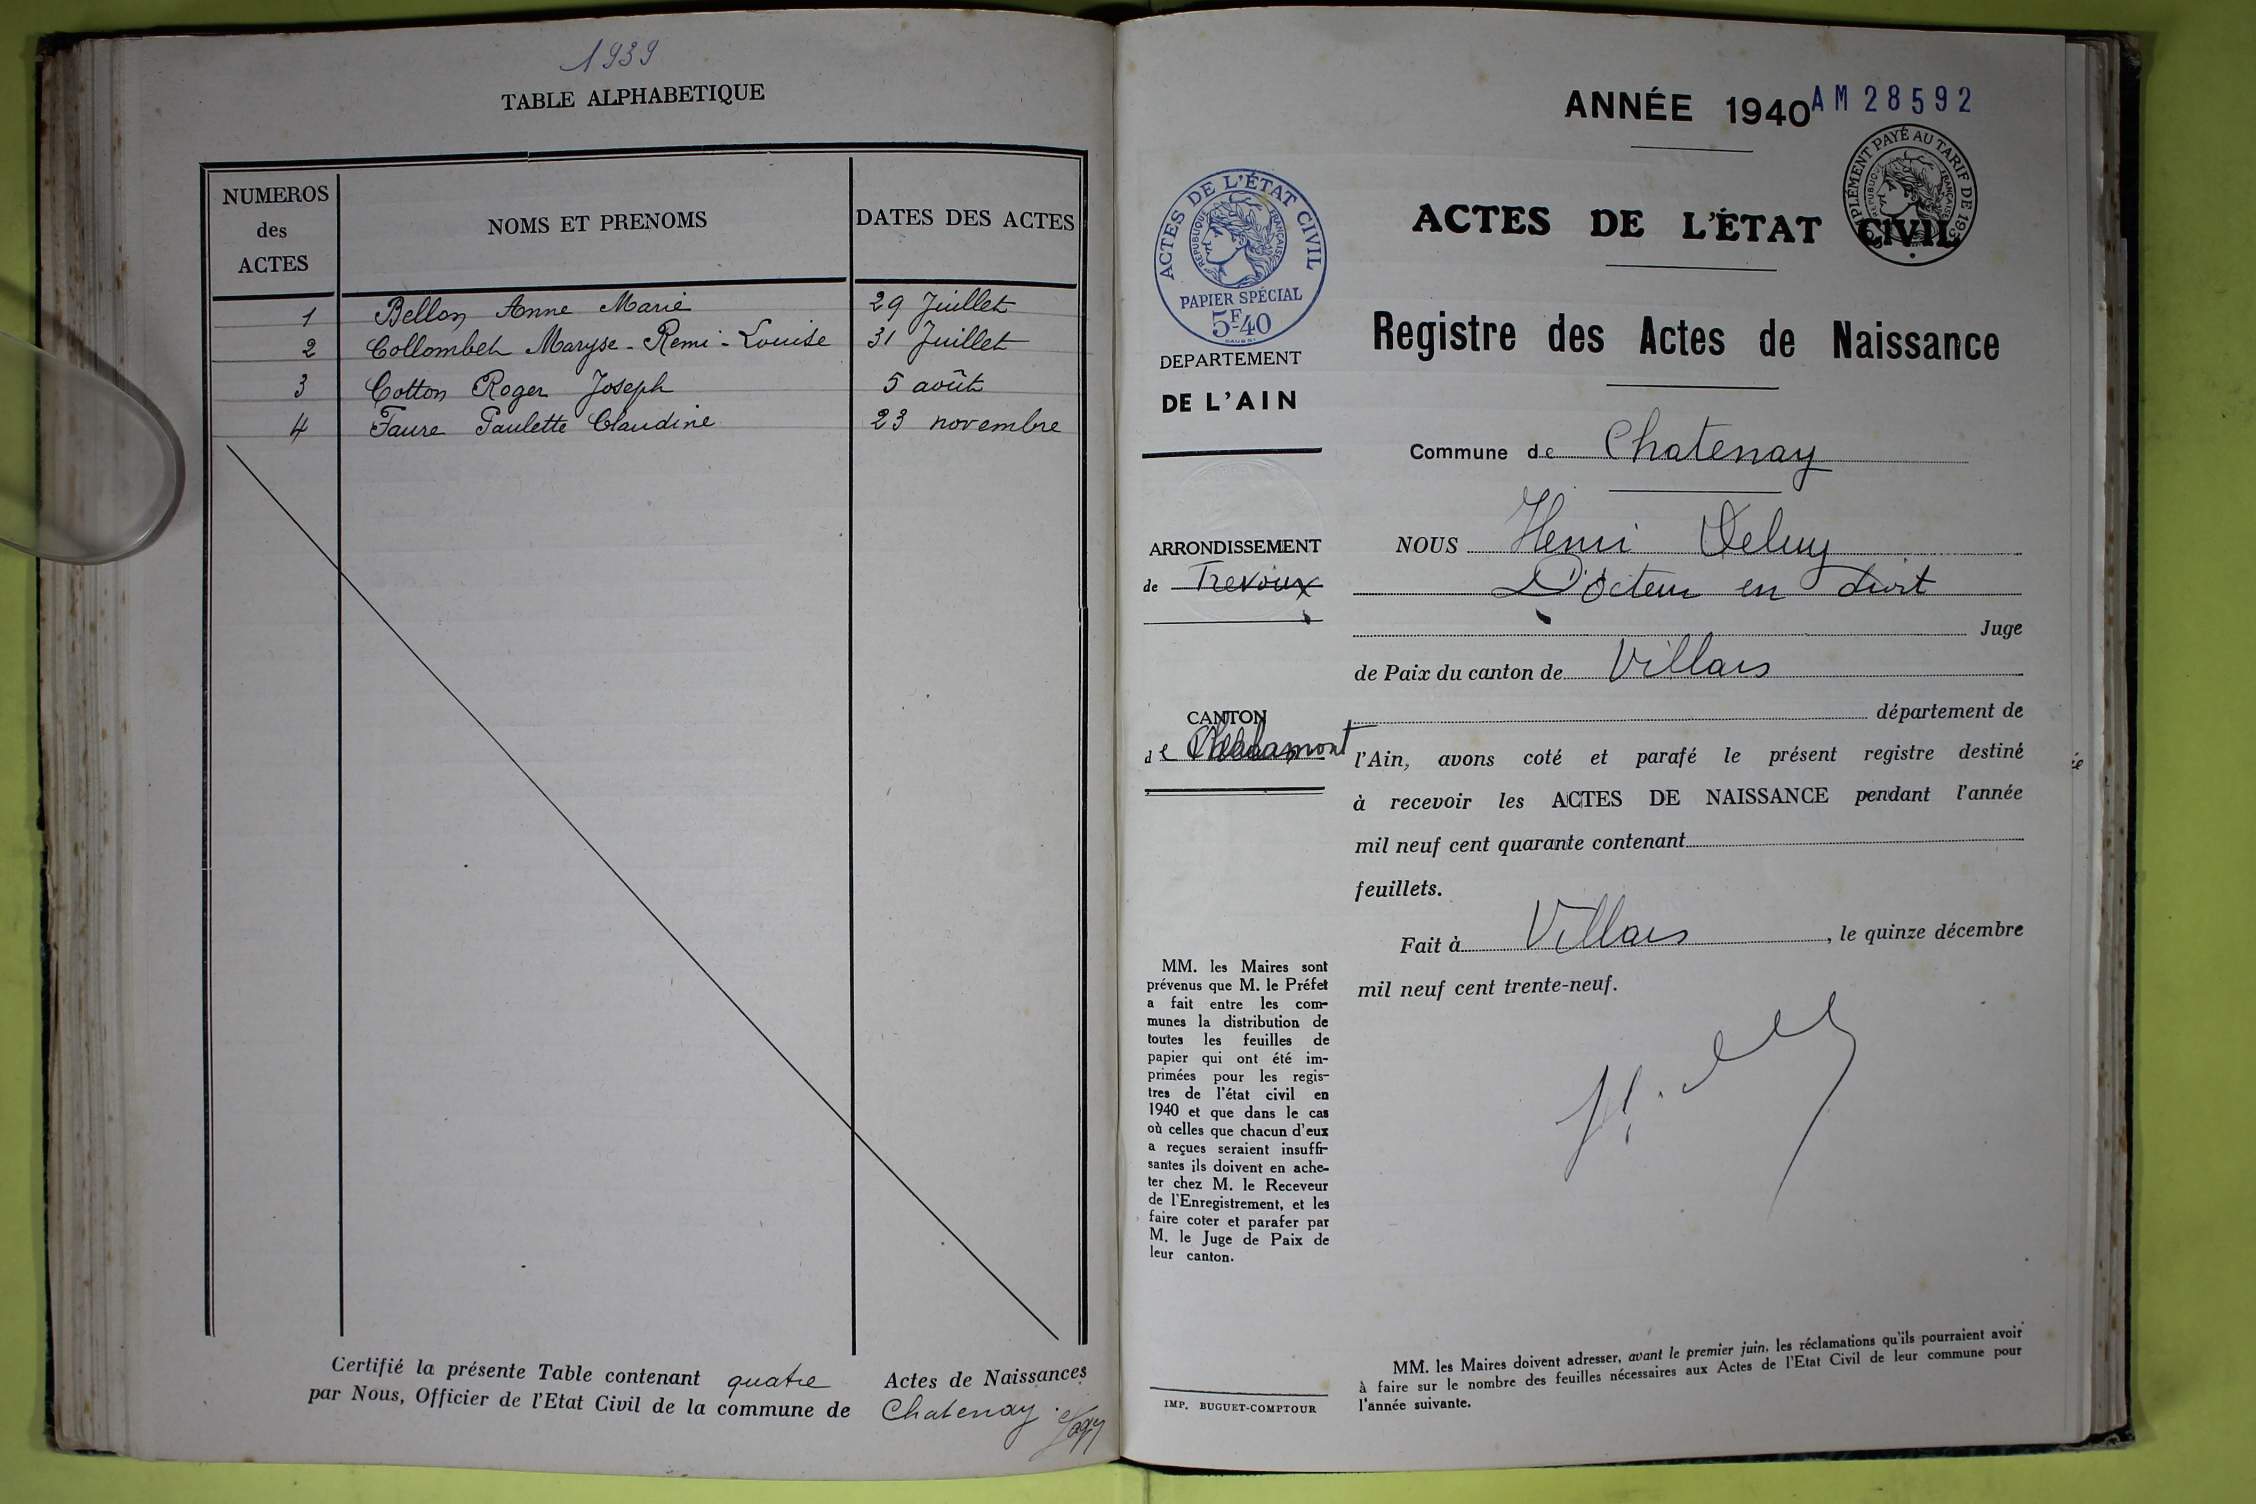 1939
TABLE ALPHABETIQUE
NUMEROS
des
ACTES
NOMS ET PRENOMS
DATES DES ACTES
1 Bellon Anne Marie 29 Juillet
2 Collombet Maryse - Remi - Louise 31 Juillet
3 Cotton Roger Joseph 5 août
4 Faure Paulette Claudine 23 novembre
Certifié la présente Table contenant quatre Actes de Naissances
par Nous, Officier de l'Etat Civil de la commune de Chatenay.
ANNÉE 1940
AM 28592
SUPPLÉMENT PAYÉ AU TARIF DE 193
RÉPUBLIQUE FRANÇAISE
ACTES DE L'ÉTAT CIVIL
ACTES DE L'ÉTAT CIVIL
RÉPUBLIQUE FRANÇAISE
PAPIER SPÉCIAL
5F-40
DEPARTEMENT
DE L'AIN
Registre des Actes de Naissance
Commune de Chatenay
ARRONDISSEMENT
de Trevoux
CANTON
de Chalamont
NOUS Henri
Docteur en droit
Juge
de Paix du canton de Villars
département de
l'Ain, avons coté et parafé le présent registre destiné
à recevoir les ACTES DE NAISSANCE pendant l'année
mil neuf cent quarante contenant
feuillets.
Fait à Villars, le quinze décembre
mil neuf cent trente-neuf.
MM. les Maires sont
prévenus que M. le Préfet
a fait entre les com-
munes la distribution de
toutes les feuilles de
papier qui ont été im-
primées pour les regis-
tres de l'état civil en
1940 et que dans le cas
où celles que chacun d'eux
a reçues seraient insuffi-
santes ils doivent en ache-
ter chez M. le Receveur
de l'Enregistrement, et les
faire coter et parafer par
M. le Juge de Paix de
leur canton.
IMP. BUGUET-COMPTOUR
MM. les Maires doivent adresser, avant le premier juin, les réclamations qu'ils pourraient avoir
à faire sur le nombre des feuilles nécessaires aux Actes de l'Etat Civil de leur commune pour
l'année suivante.